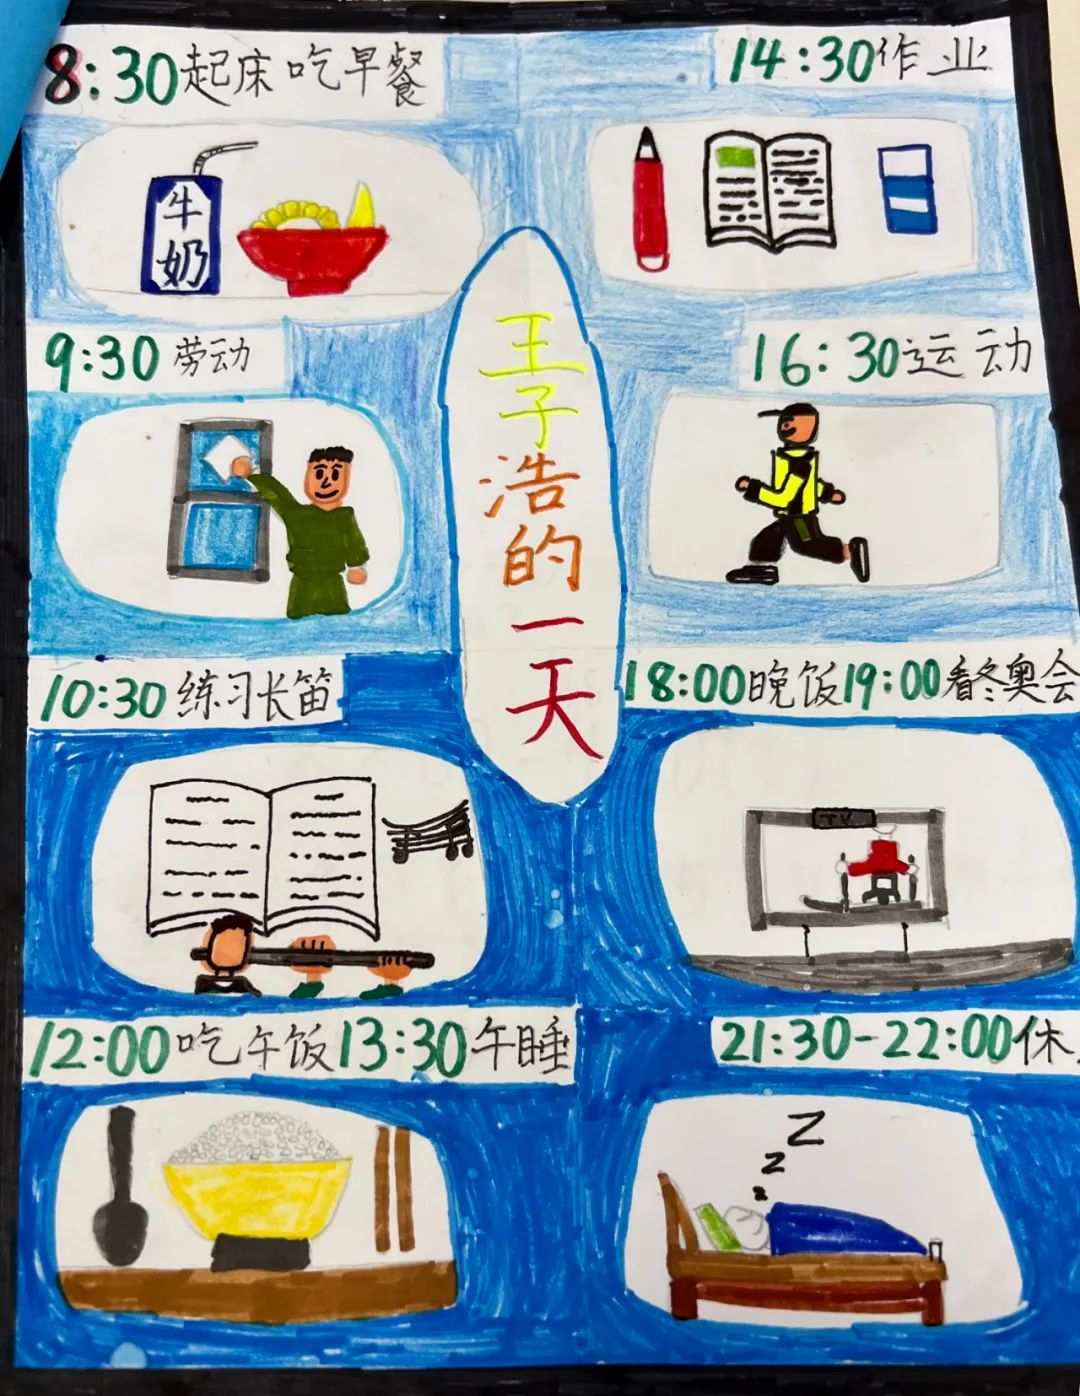 8:30起床 吃早餐
牛
奶
9:30 劳动
10:30 练习长笛
12:00吃午饭13:30午睡
王
子
浩
的
一
天
14:30作业
16:30运动
18:00晚饭19:00看冬奥会
TV
21:30-22:00休
Z
z
z